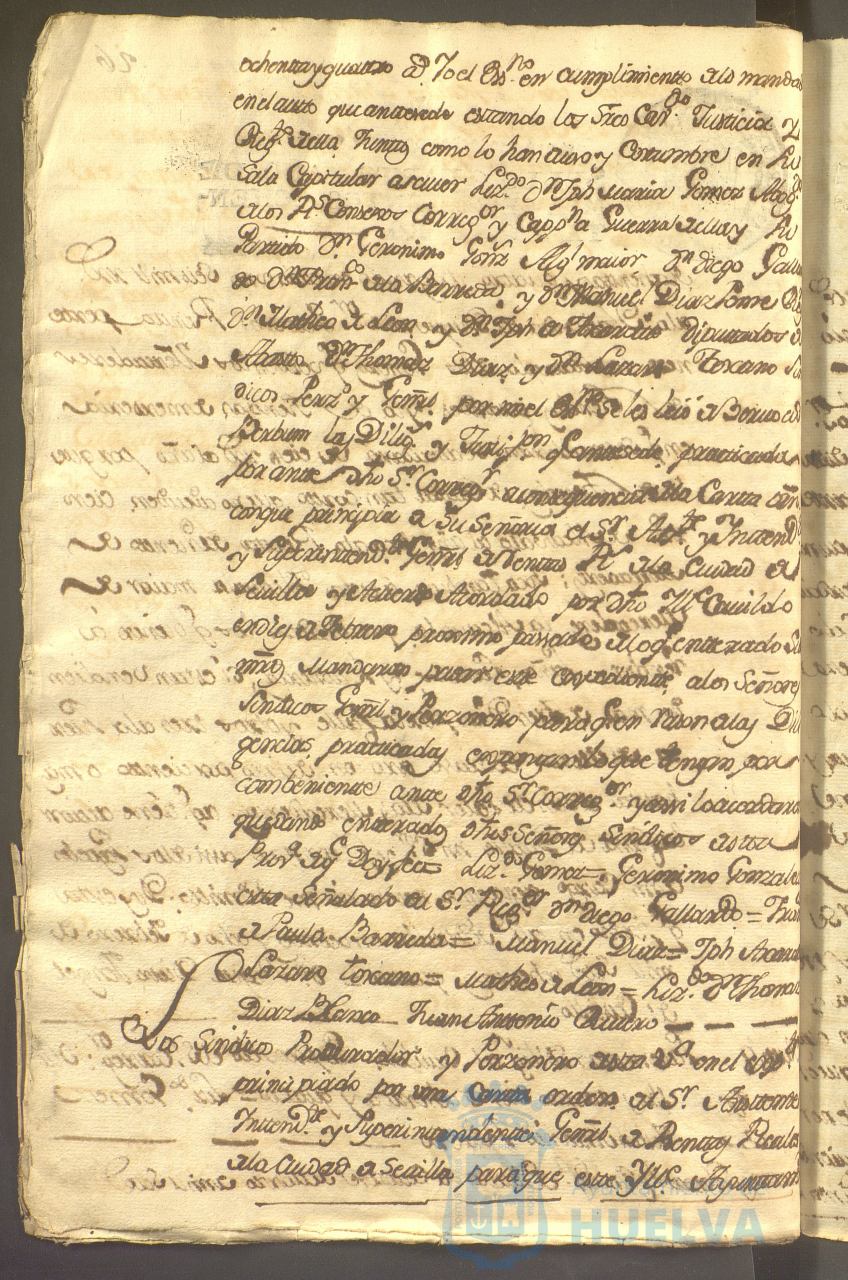 ochenta y quatro a.s Yo el Ess.no en cumplimiento alo mandado
en el auto que antesede estando los Sres Con.o Justicia y
Reg.to della Juntos como lo han de uso y Costumbre en su
Sala Capitular a saver Liz.do Dn Jph Maria Gomez Abog.do
a los Rs Consexos Correg.or y Cappn a Guerra della y su
Partido Dn Geronimo Gonz Alg.l maior Dn Diego Gallar
do Dn Fran.co de la Barreda, y Dn Manuel Diaz
Dn Matheo de Leon y Dn Jph diputados de
Abasto Dn Thomas Diaz, y Dn Lazaro Toscano Sin
dicos Perz.o y Genl, por mi el Ess.no se les leió de Bervo ad
Berbum la Dilig.a y practicada
por ante dho Sr Correg.r a consequencia de la Carta orn
con que principia a Su Señoria el Sr Asis.te y Intend.te
y Superintend.te Genl de Rentas Rs de la Ciudad de
Sevilla y Acuerdo Acordado por dho Yll.e Cavildo
en diez de Febrero proximo pasado de lo q enterado Sus
mrds Mandaron pasar este expediente a los Señores
Sindicos Genl y Perzonero para q en razon a las Dili
gencias practicadas expongan lo que tengan por
combeniente ante dho Sr Correg.or y assi lo acordaron
quedando enterados dhos Señores Sindicos de esta
Prov.a de q Doy fee Liz.do Gomez = Geronimo Gonzales
esta Señalado del Sr Reg.or Dn Diego Gallardo = Fran.co
de Paula Barreda = Manuel Diaz = Jph
Lazaro toscano = Matheo de Leon = Liz.do Dn Thomas
Diaz Blanco Juan Antonio Quintero
Los Sindico Procurador y Perzonero de esta V.a en el exp.te
principiado por una Carta orden del Sr Asistente
Intend.te y Superintendente Genl de Rentas Reales
de la Ciudad de Sevilla para que este Yll.e Ayuntam.to
HUELVA